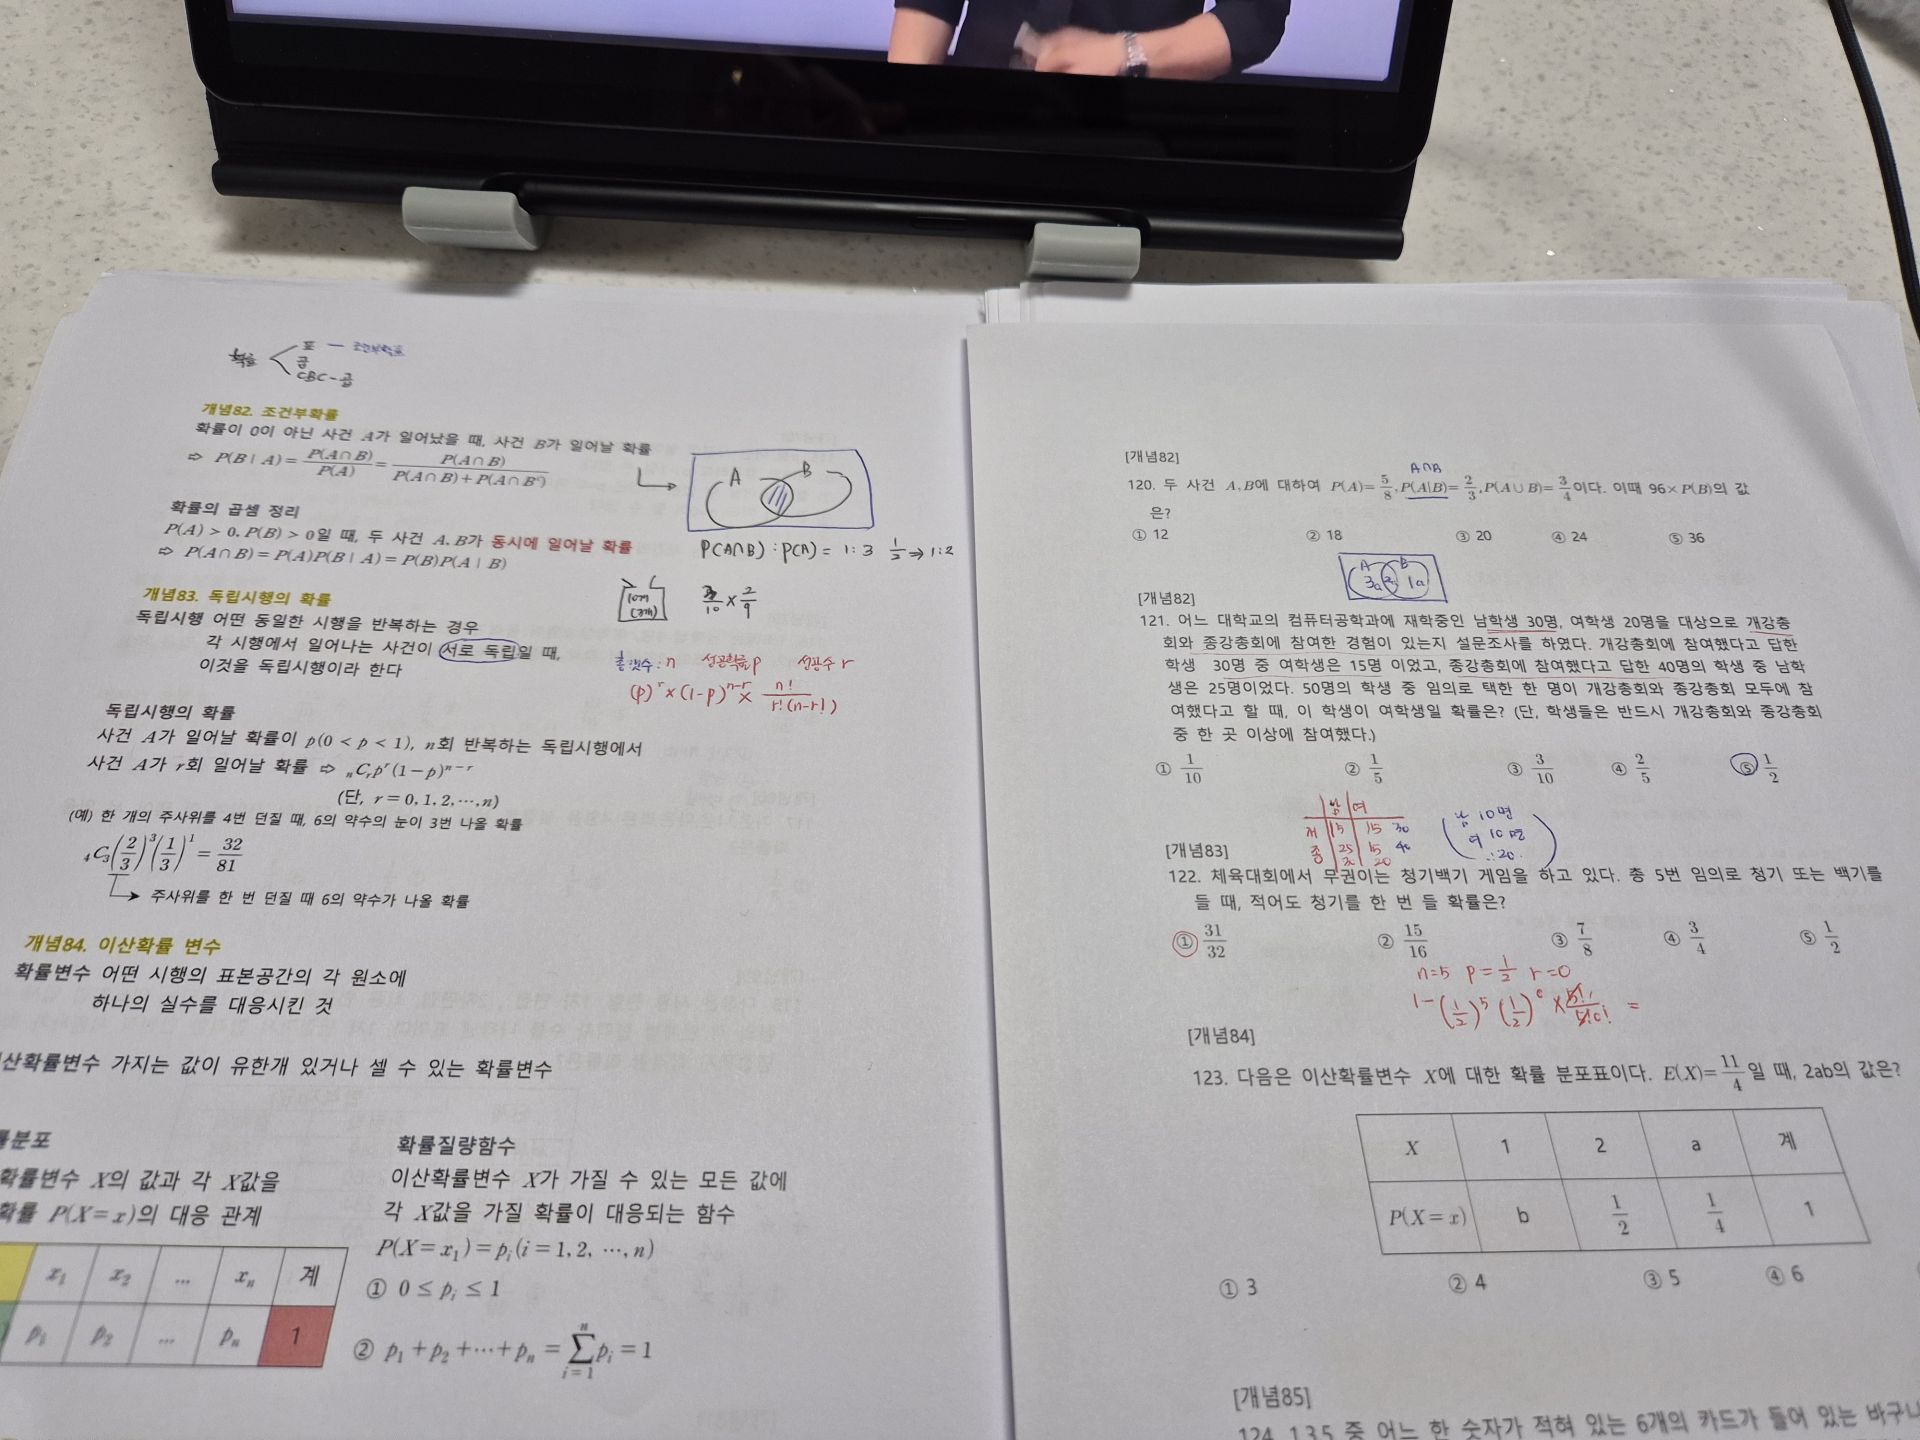 확률
표 — 조건부확률
곱
CBC - 곱
개념82. 조건부확률
확률이 0이 아닌 사건 A가 일어났을 때, 사건 B가 일어날 확률
⇨ P(B | A) = P(A∩B)/P(A) = P(A∩B)/(P(A∩B)+P(A∩Bᶜ))
A B
확률의 곱셈 정리
P(A) > 0, P(B) > 0일 때, 두 사건 A, B가 동시에 일어날 확률
⇨ P(A∩B) = P(A)P(B | A) = P(B)P(A | B)
P(A∩B) : P(A) = 1:3 1/2 ⇒ 1:2
개념83. 독립시행의 확률
10개
(3개)
3/10 × 2/9
독립시행 어떤 동일한 시행을 반복하는 경우
각 시행에서 일어나는 사건이 서로 독립일 때,
이것을 독립시행이라 한다
총 횟수 : n 성공확률 p 성공수 r
(p)ʳ × (1-p)ⁿ⁻ʳ × n!/r!(n-r!)
독립시행의 확률
사건 A가 일어날 확률이 p(0 < p < 1), n회 반복하는 독립시행에서
사건 A가 r회 일어날 확률 ⇨ ₙCᵣpʳ(1-p)ⁿ⁻ʳ
(단, r = 0, 1, 2, ⋯, n)
(예) 한 개의 주사위를 4번 던질 때, 6의 약수의 눈이 3번 나올 확률
₄C₃(2/3)³(1/3)¹ = 32/81
주사위를 한 번 던질 때 6의 약수가 나올 확률
개념84. 이산확률 변수
확률변수 어떤 시행의 표본공간의 각 원소에
하나의 실수를 대응시킨 것
산확률변수 가지는 값이 유한개 있거나 셀 수 있는 확률변수
률분포
확률변수 X의 값과 각 X값을
확률 P(X=x)의 대응 관계
x₁ x₂ ... xₙ 계
p₁ p₂ ... pₙ 1
확률질량함수
이산확률변수 X가 가질 수 있는 모든 값에
각 X값을 가질 확률이 대응되는 함수
P(X=x₁) = pᵢ (i = 1, 2, ⋯, n)
① 0 ≤ pᵢ ≤ 1
② p₁+p₂+⋯+pₙ = ∑ⁿᵢ₌₁ pᵢ = 1
[개념82]
A∩B
120. 두 사건 A, B에 대하여 P(A)=5/8, P(A|B)=2/3, P(A∪B)=3/4이다. 이때 96×P(B)의 값
은?
① 12 ② 18 ③ 20 ④ 24 ⑤ 36
A B
3a 2a 1a
[개념82]
121. 어느 대학교의 컴퓨터공학과에 재학중인 남학생 30명, 여학생 20명을 대상으로 개강총
회와 종강총회에 참여한 경험이 있는지 설문조사를 하였다. 개강총회에 참여했다고 답한
학생 30명 중 여학생은 15명 이었고, 종강총회에 참여했다고 답한 40명의 학생 중 남학
생은 25명이었다. 50명의 학생 중 임의로 택한 한 명이 개강총회와 종강총회 모두에 참
여했다고 할 때, 이 학생이 여학생일 확률은? (단, 학생들은 반드시 개강총회와 종강총회
중 한 곳 이상에 참여했다.)
① 1/10 ② 1/5 ③ 3/10 ④ 2/5 ⑤ 1/2
남 여
개 15 15 30
종 25 15 40
30 20
남 10명
여 10명
∴ 20
[개념83]
122. 체육대회에서 무권이는 청기백기 게임을 하고 있다. 총 5번 임의로 청기 또는 백기를
들 때, 적어도 청기를 한 번 들 확률은?
① 31/32 ② 15/16 ③ 7/8 ④ 3/4 ⑤ 1/2
n=5 p=1/2 r=0
1-(1/2)⁵(1/2)⁰ × 5!/5!0! =
[개념84]
123. 다음은 이산확률변수 X에 대한 확률 분포표이다. E(X)=11/4일 때, 2ab의 값은?
X 1 2 a 계
P(X=x) b 1/2 1/4 1
① 3 ② 4 ③ 5 ④ 6
[개념85]
124. 1,3,5 중 어느 한 숫자가 적혀 있는 6개의 카드가 들어 있는 바구니